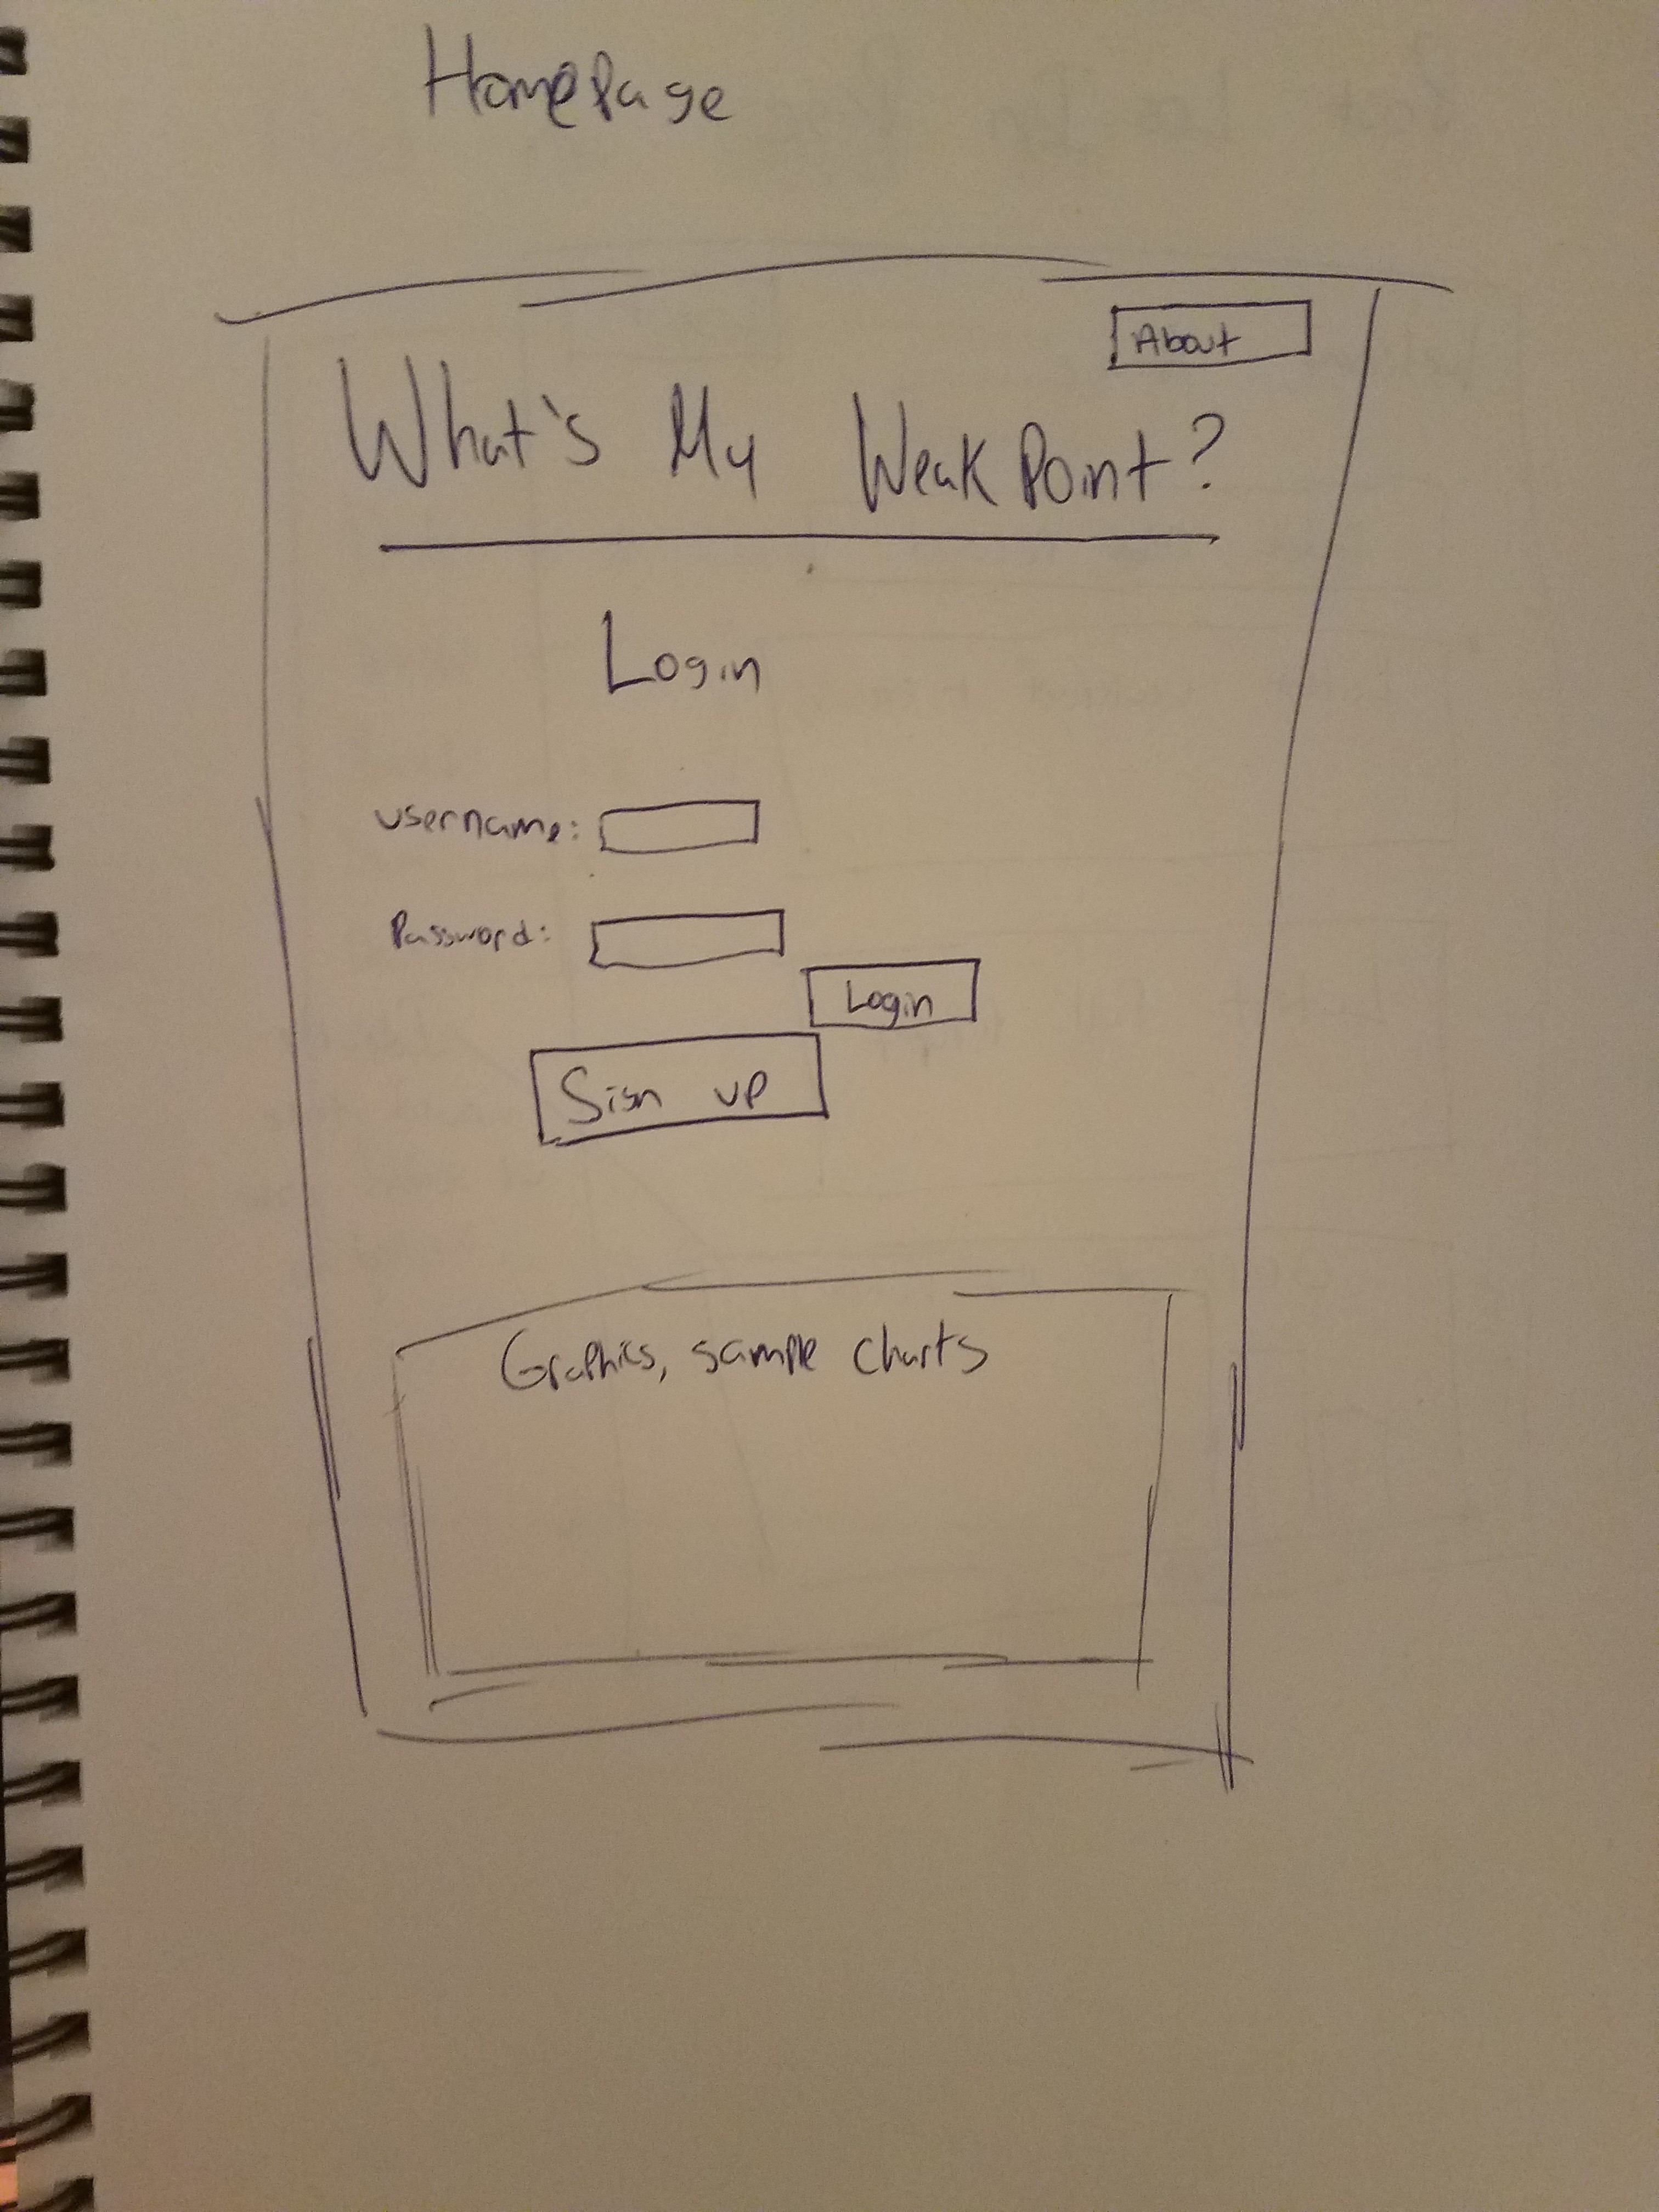 HomePage
About
What's My Weak Point?
Login
username:
Password:
Login
Sign up
Graphics, sample charts